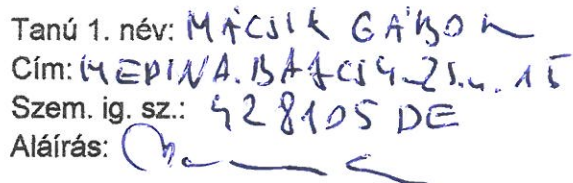 Tanú 1. név: MÁCSIK GÁBOR
Cím: MEDINA. BAJCSY-ZS. u. 15
Szem. ig. sz.: 428105 DE
Aláírás: